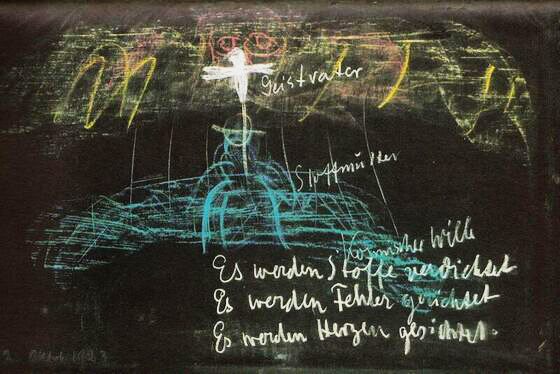 Geistvater
Stoffmutter
Kosmischer Wille
Es werden Stoffe verdichtet
Es werden Fehler gerichtet
Es werden Herzen gesichtet.
2. Oktob. 1923